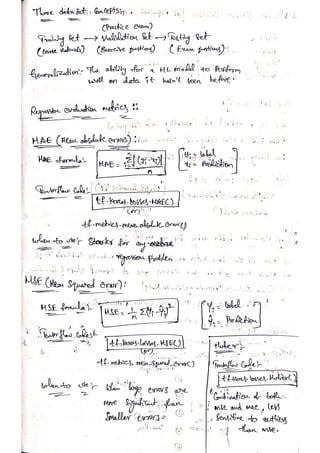 Three data set concepts:
(Practice exam)
Training Set → Validation Set → Testing Set
(Course Materials) (Exercise questions) (Exam questions)
Generalization: The ability for a ML model to perform
well on data it hasn't seen before.
Regression evaluation metrics:
MAE (Mean absolute error):
MAE formula:
MAE = Σ |(yi - xi)| / n
yi = label
xi = Prediction
Tensorflow Code:
tf.keras.losses.MAE()
(or)
tf.metrics.mean_absolute_error()
When to use: Starter for any
regression Problem
MSE (Mean Squared error):
MSE formula:
MSE = 1/n Σ(yi - ŷi)²
yi = label
ŷi = Prediction
Tensorflow Code:
tf.keras.losses.MSE()
(or)
tf.metrics.mean_squared_error()
When to use: When large errors are
more significant than
smaller errors.
Huber:
Tensorflow Code:
tf.keras.losses.Huber()
Combination of both
MSE and MAE, less
sensitive to outliers
than MSE.